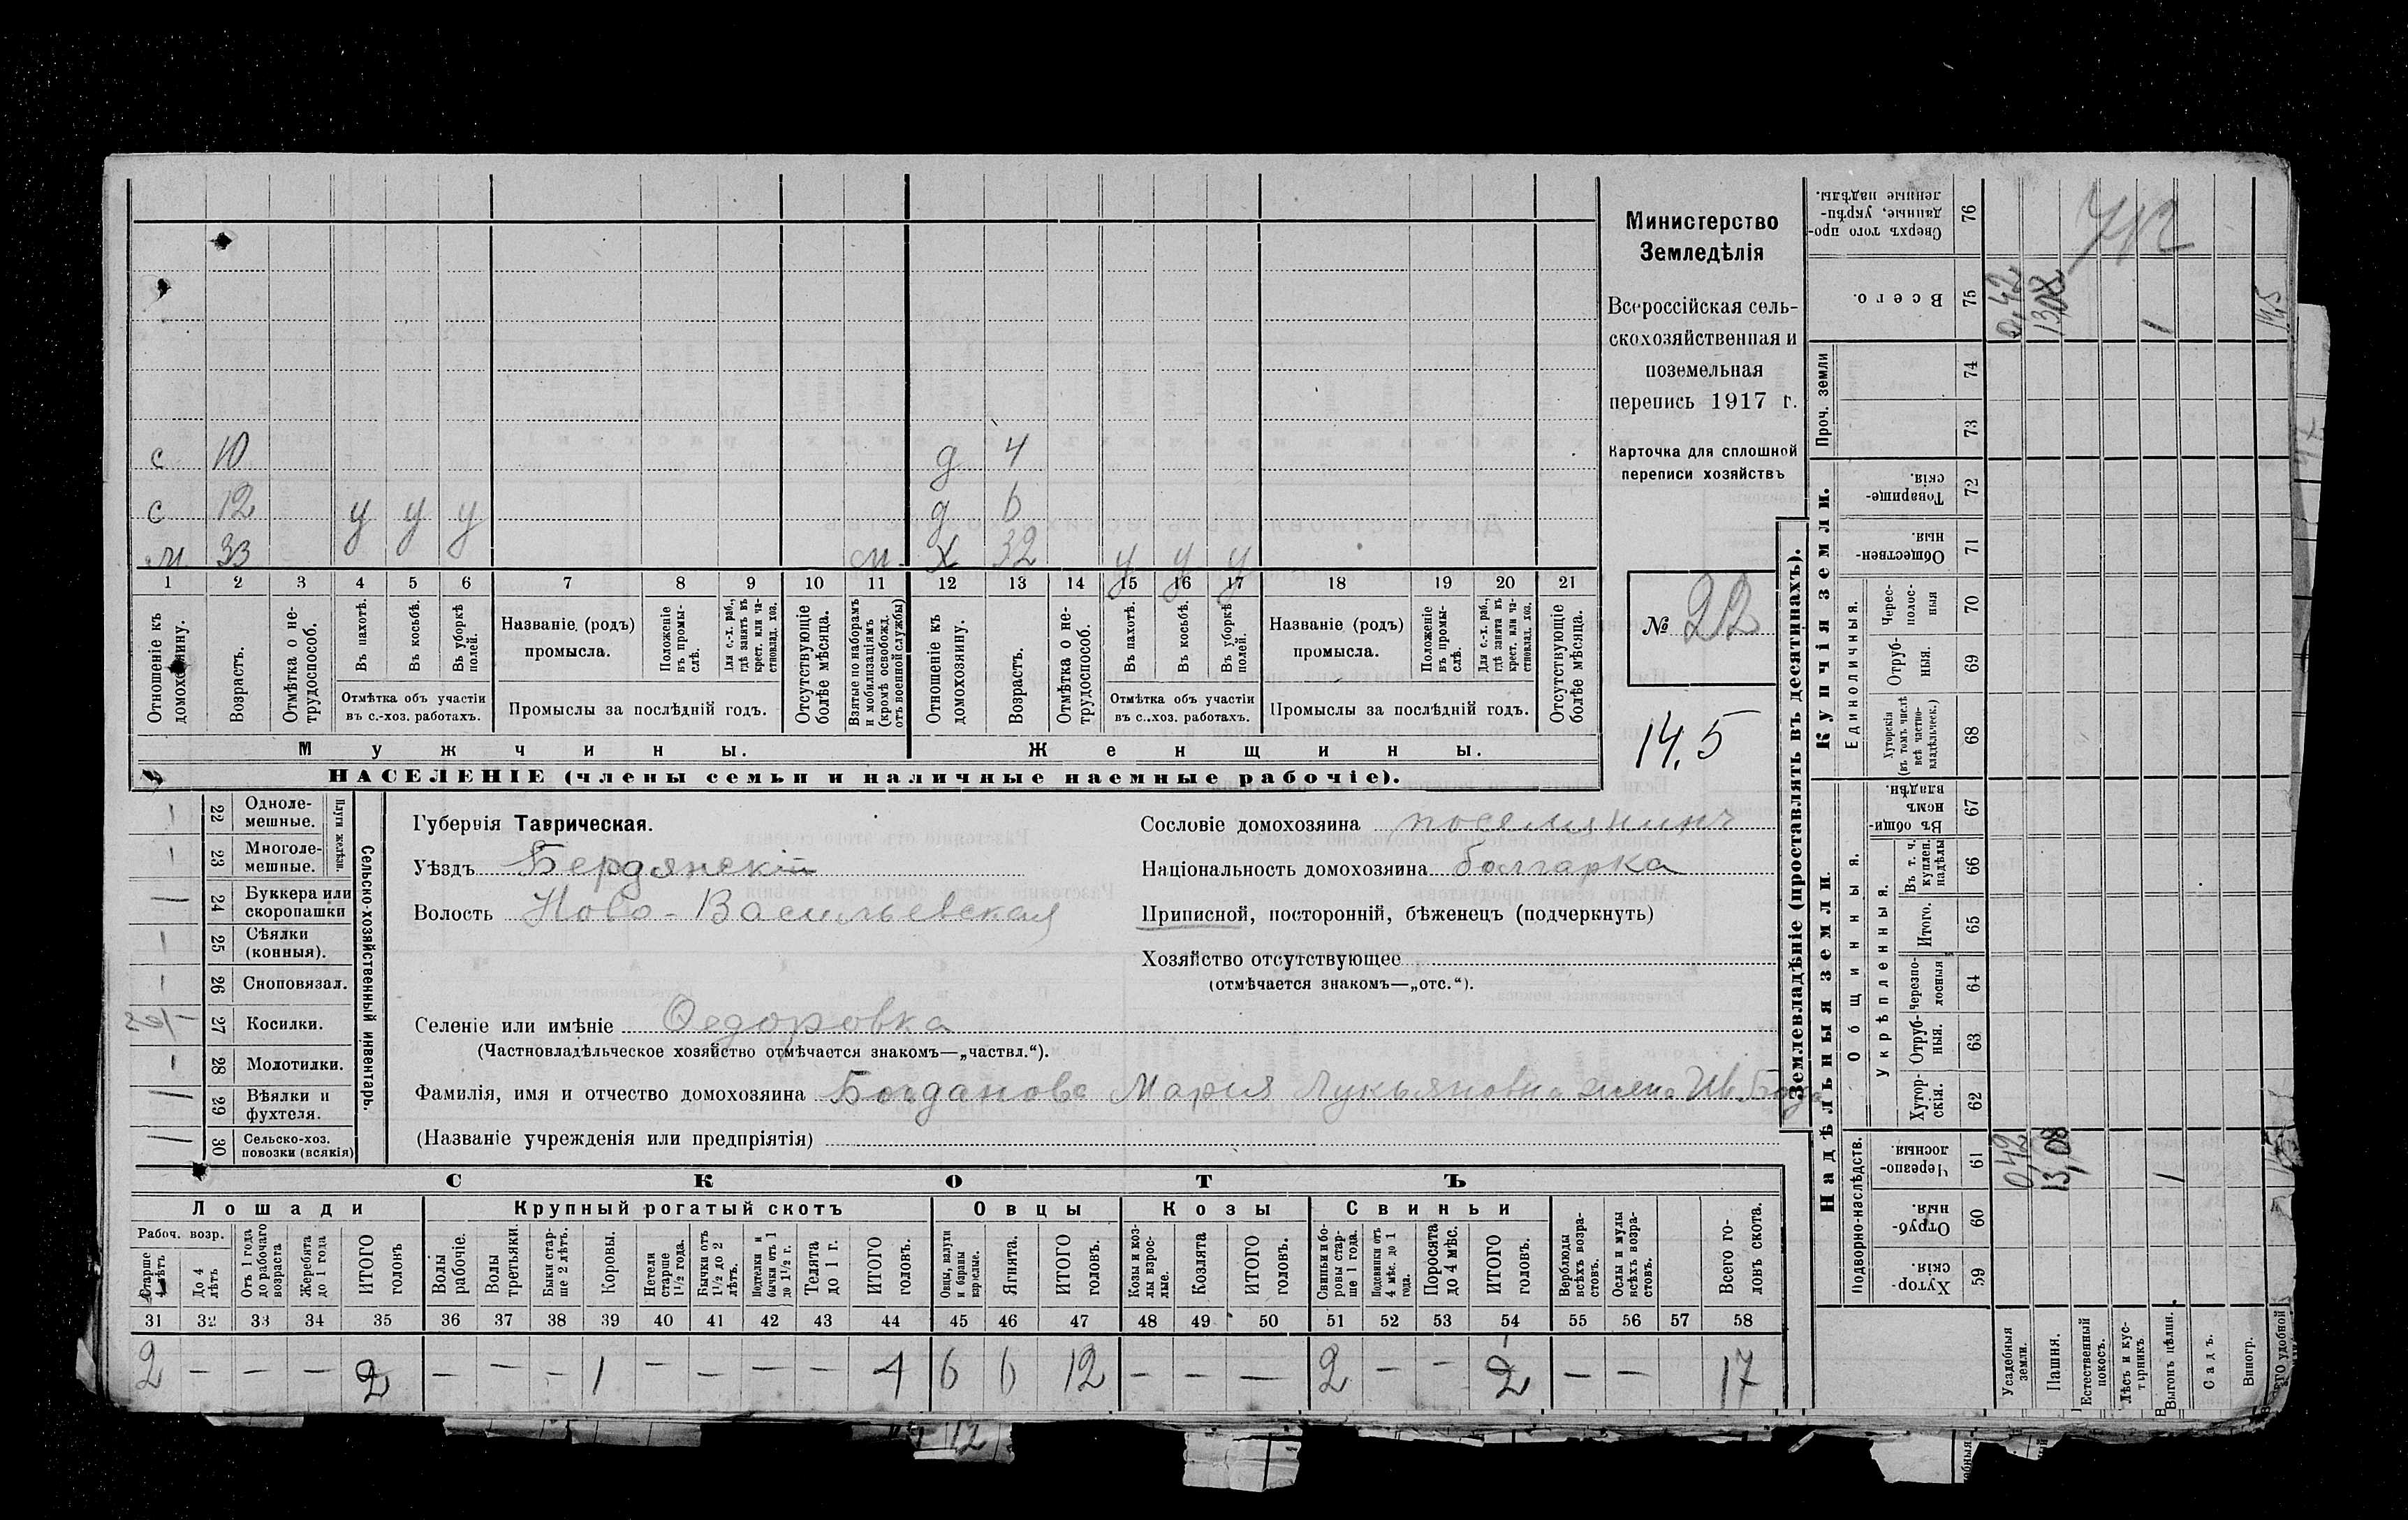 Министерство
Земледѣлія
Всероссійская сель-
скохозяйственная и
поземельная
перепись 1917 г.
Карточка для сплошной
переписи хозяйствъ
№ 22
14,5
с 10 д 4
с 12 у у у д 6
м 33 м х 32 у у у
1 2 3 4 5 6 7 8 9 10 11 12 13 14 15 16 17 18 19 20 21
Отношеніе къ домохозяину.
Возрастъ.
Отмѣтка о не-трудоспособ.
Въ пахотѣ.
Въ косьбѣ.
Въ уборкѣ полей.
Отмѣтка объ участіи
въ с.-хоз. работахъ.
Названіе (родъ)
промысла.
Положеніе въ промы-слѣ.
Для с.-х. раб., гдѣ занятъ въ крест. или ча-стновлад. хоз.
Промыслы за послѣдній годъ.
Отсутствующіе болѣе мѣсяца.
Взятые по наборамъ и мобилизаціямъ (кромѣ освобожд. отъ военной службы)
Отношеніе къ домохозяину.
Возрастъ.
Отмѣтка о не-трудоспособ.
Въ пахотѣ.
Въ косьбѣ.
Въ уборкѣ полей.
Отмѣтка объ участіи
въ с.-хоз. работахъ.
Названіе (родъ)
промысла.
Положеніе въ промы-слѣ.
Для с.-х. раб., гдѣ занята въ крест. или ча-стновлад. хоз.
Промыслы за послѣдній годъ.
Отсутствующіе болѣе мѣсяца.
Мужчины. Женщины.
НАСЕЛЕНІЕ (члены семьи и наличные наемные рабочіе).
Сельско-хозяйственный инвентарь.
Плуги желѣзн.
— 22 Одноле-мешные.
— 23 Многоле-мешные.
— 24 Буккера или скоропашки
— 25 Сѣялки (конныя).
— 26 Сноповязал.
27 Косилки.
— 28 Молотилки.
— 29 Вѣялки и фухтеля.
— 30 Сельско-хоз. повозки (всякія)
Губернія Таврическая.
Уѣздъ Бердянскій
Волость Ново-Васильевская
Селеніе или имѣніе Федоровка
(Частновладѣльческое хозяйство отмѣчается знакомъ—„частвл.“).
Фамилія, имя и отчество домохозяина Богданова Марія Лукьяновна жена Ив. Богд
(Названіе учрежденія или предпріятія)
Сословіе домохозяина поселянинъ
Національность домохозяина болгарка
Приписной, посторонній, бѣженецъ (подчеркнуть)
Хозяйство отсутствующее
(отмѣчается знакомъ—„отс.“).
СКОТЪ
Лошади Крупный рогатый скотъ Овцы Козы Свиньи
Рабоч. возр.
Старше 4 лѣтъ
До 4 лѣтъ
Отъ 1 года до рабочаго возраста
Жеребята до 1 года
ИТОГО головъ
Волы рабочіе.
Волы третьяки.
Быки стар-ше 2 лѣтъ.
Коровы.
Нетели старше 1½ года.
Бычки отъ 1½ до 2 лѣтъ.
Подтелки и бычки отъ 1 до 1½ г.
Телята до 1 г.
ИТОГО головъ.
Овцы, валухи и бараны взрослые.
Ягнята.
ИТОГО головъ.
Козы и коз-лы взрос-лые.
Козлята
ИТОГО головъ.
Свиньи и бо-ровы стар-ше 1 года.
Подсвинки отъ 4 мѣс. до 1 года.
Поросята до 4 мѣс.
ИТОГО головъ.
Верблюды всѣхъ возра-стовъ.
Ослы и мулы всѣхъ возра-стовъ.
Всего го-ловъ скота.
31 32 33 34 35 36 37 38 39 40 41 42 43 44 45 46 47 48 49 50 51 52 53 54 55 56 57 58
2 — — — 2 — — — 1 — — — — 1 6 6 12 — — — 2 — — 2 — — 17
Землевладѣніе (проставлять въ десятинахъ).
Надѣльныя земли. Купчія земли. Проч. земли
Подворно-наслѣдств.
Общинныя.
Укрѣпленныя.
Единоличныя.
Хутор-скія. 59
Отруб-ныя. 60
Черезпо-лосныя. 61
Хутор-скія. 62
Отруб-ныя. 63
Черезпо-лосныя 64
Итого. 65
Въ т. ч. куплен. надѣлы 66
Въ общин-номъ владѣн. 67
Хуторскія (въ томъ числѣ всѣ частно-владѣльческ.) 68
Отруб-ныя. 69
Черес-полос-ныя 70
Обществен-ныя. 71
Товарище-скія. 72
73
74
Всего. 75
Сверхъ того про-данные, укрѣп-ленные надѣлы. 76
Усадебныя земли. 0,42 0,42
Пашня. 13,08 13,08
Естественный покосъ.
Лѣсъ и кус-тарникъ
Выгонъ цѣлин. 1 1
Садъ.
Виногр.
удобной 14,5
12